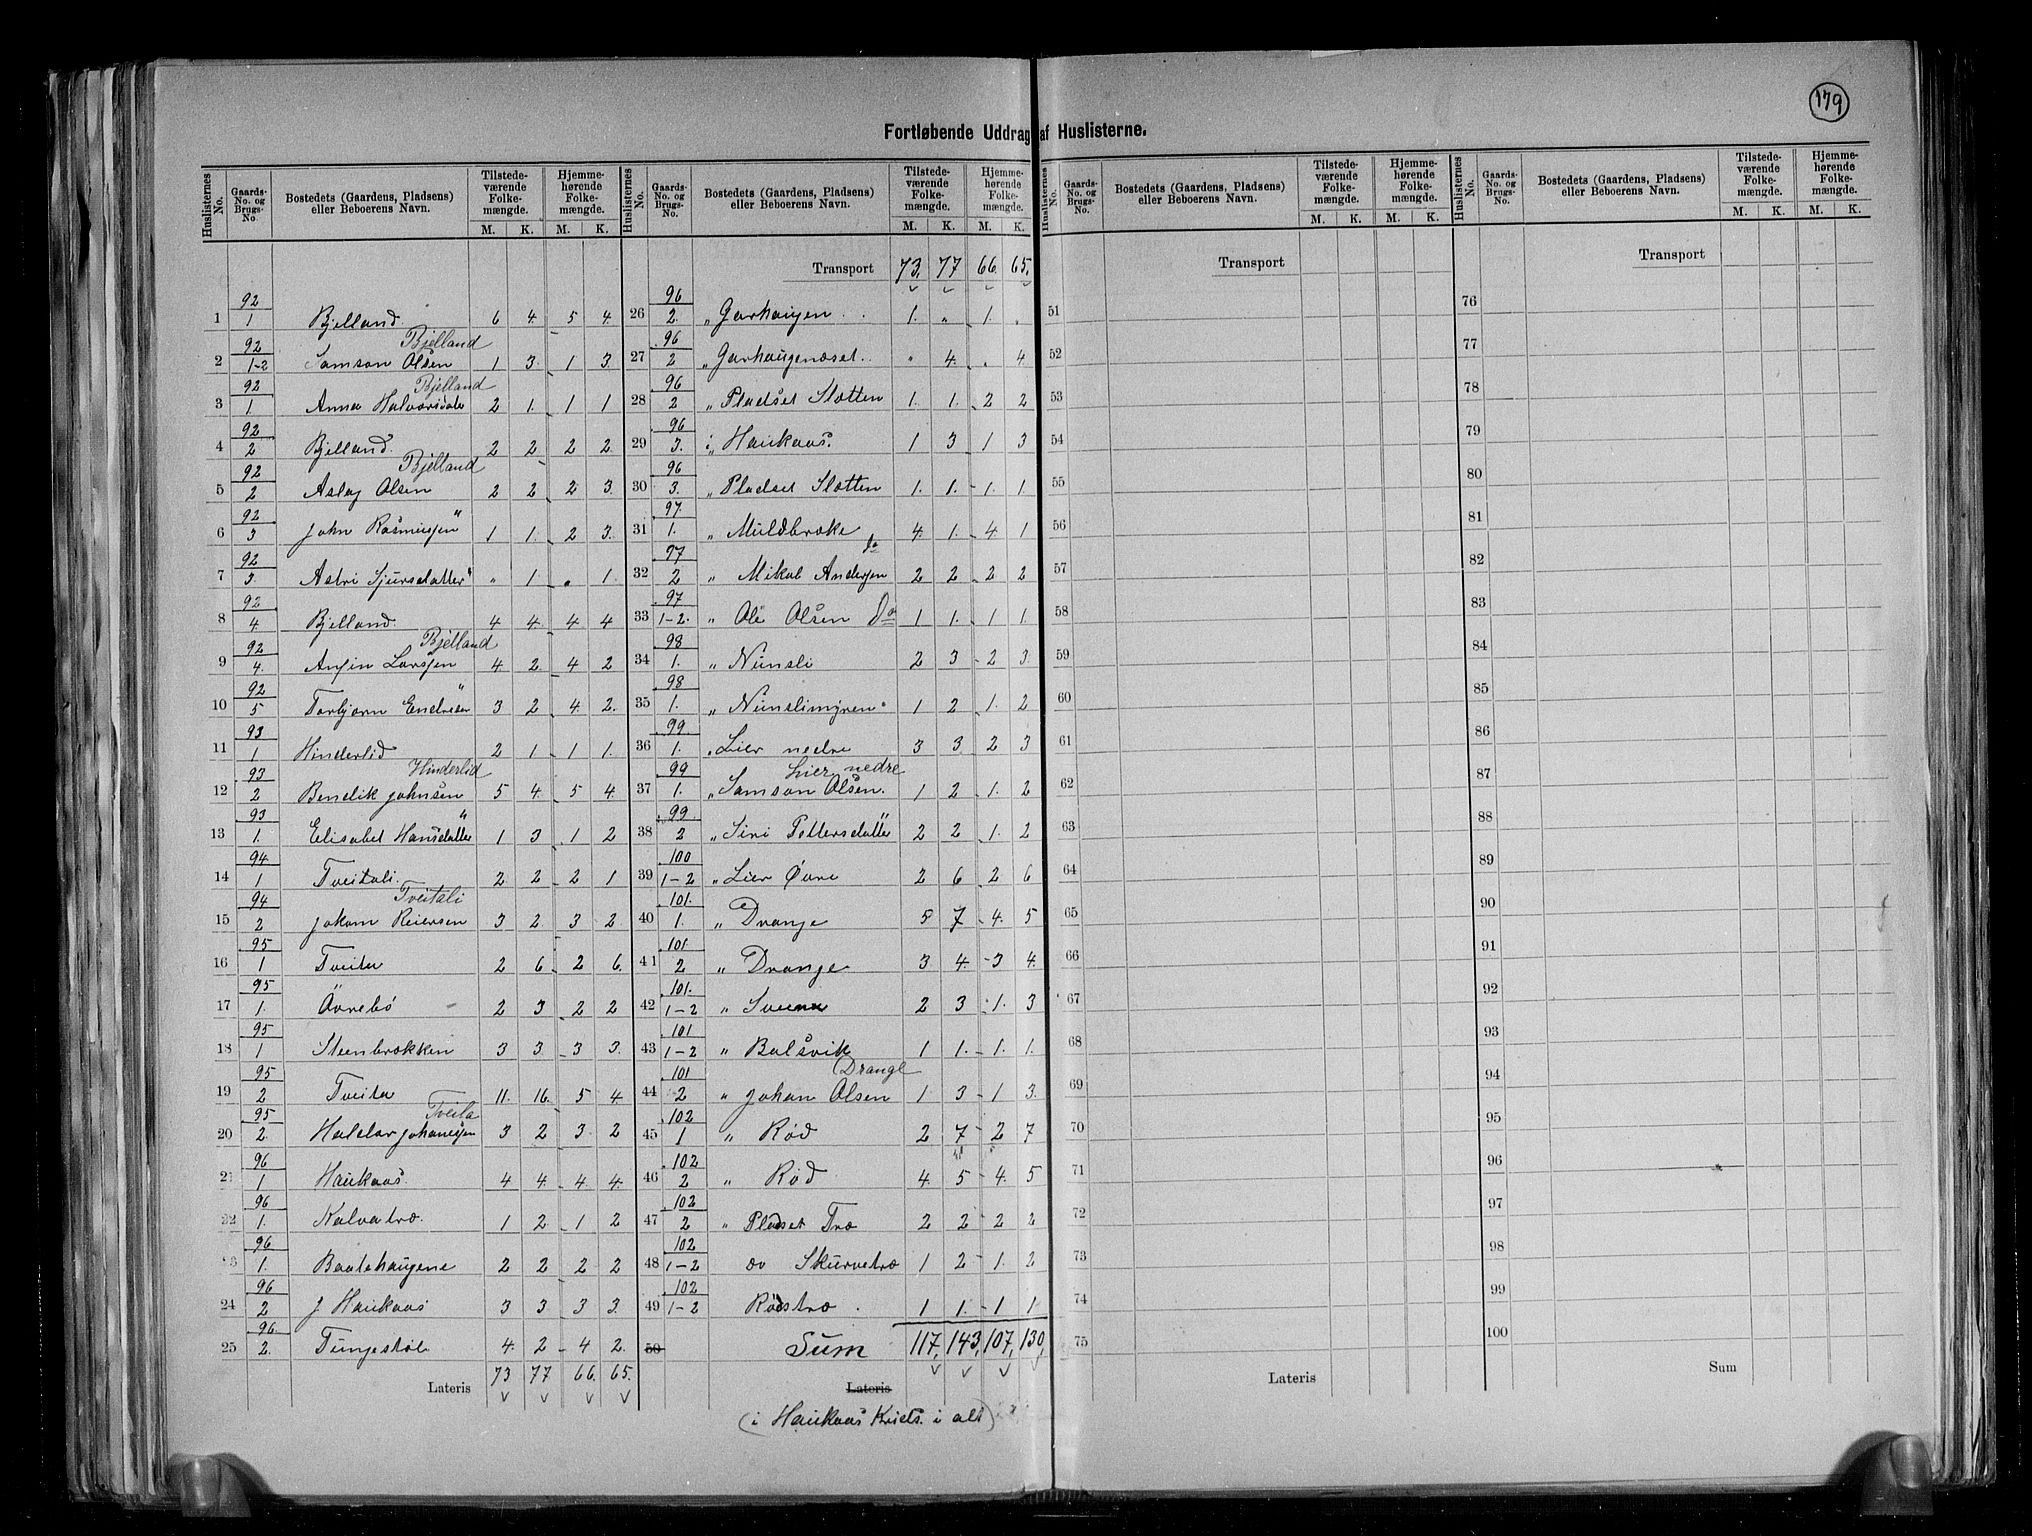 179
Fortløbende Uddrag af Huslisterne.
Huslisternes No. | Gaards-No. og Brugs-No. | Bostedets (Gaardens, Pladsens) eller Beboerens Navn. | Tilstedeværende Folkemængde. M. K. | Hjemmehørende Folkemængde. M. K.
1 | 92/1 | Bjelland | 6 4 5 4
2 | 92/1-2 | Samson Olsen Bjelland | 1 3 1 3
3 | 92/1 | Anna Halvorsdatr Bjelland | 2 1 1 1
4 | 92/2 | Bjelland | 2 2 2 2
5 | 92/2 | Aslag Olsen Bjelland | 2 2 2 3
6 | 92/3 | John Rasmussen " | 1 1 2 3
7 | 92/3 | Astri Sjursdatter " | " 1 " 1
8 | 92/4 | Bjelland | 4 4 4 4
9 | 92/4 | Anfin Larssen Bjelland | 4 2 4 2
10 | 92/5 | Torbjørn Endresen " | 3 2 4 2
11 | 93/1 | Hinderlid | 2 1 1 1
12 | 93/2 | Bendik Johnsen Hinderlid | 5 4 5 4
13 | 93/1 | Elisabet Hansdatter " | 1 3 1 2
14 | 94/1 | Tveitali | 2 2 2 1
15 | 94/2 | Johan Reiersen Tveitali | 3 2 3 2
16 | 95/1 | Tveita | 2 6 2 6
17 | 95/1 | Övrebö | 2 3 2 2
18 | 95/1 | Steenbrækken | 3 3 3 3
19 | 95/2 | Tveita | 11 16 5 4
20 | 95/2 | Haldar Johanssen Tveita | 3 2 3 2
21 | 96/1 | Haukaas | 4 4 4 4
22 | 96/1 | Kalvatræ | 1 2 1 2
23 | 96/1 | Baatehaugene | 2 2 2 2
24 | 96/2 | J Haukaas | 3 3 3 3
25 | 96/2 | Tungestöl | 4 2 4 2
Lateris 73 77 66 65
Transport 73 77 66 65
26 | 96/2 | " Garhaugen | 1 " 1 "
27 | 96/2 | " Garhaugenæset | " 4 " 4
28 | 96/2 | " Pladset Slætten | 1 1 2 2
29 | 96/3 | i Haukaas | 1 3 1 3
30 | 96/3 | " Pladset Slætten | 1 1 1 1
31 | 97/1 | " Muldbrøke | 4 1 4 1
32 | 97/2 | " Mikal Andersen do | 2 2 2 2
33 | 97/1-2 | " Ole Olsen do | 1 1 1 1
34 | 98/1 | " Nunsli | 2 3 2 3
35 | 98/1 | " Nunslimyren | 1 2 1 2
36 | 99/1 | " Lier nedre | 3 3 2 3
37 | 99/1 | " Samson Olsen Lier nedre | 1 2 1 2
38 | 99/2 | " Siri Pettersdatter " | 2 2 1 2
39 | 100/1-2 | " Lier Øvre | 2 6 2 6
40 | 101/1 | " Drange | 5 7 4 5
41 | 101/2 | " Drange | 3 4 3 4
42 | 101/1-2 | " | 2 3 1 3
43 | 101/1-2 | " Balsvik | 1 1 1 1
44 | 101/2 | " Johan Olsen Drange | 1 3 1 3
45 | 102/1 | " Rød | 2 7 2 7
46 | 102/2 | " Rød | 4 5 4 5
47 | 102/2 | " Pladset Træ | 2 2 2 2
48 | 102/1-2 | Skurvetræ | 1 2 1 2
49 | 102/1-2 | Rødstræ | 1 1 1 1
50 | Sum | 117, 143, 107, 130,
Lateris
(i Haukaas Kreds i alt)
Huslisternes No. | Gaards-No. og Brugs-No. | Bostedets (Gaardens, Pladsens) eller Beboerens Navn. | Tilstedeværende Folkemængde. M. K. | Hjemmehørende Folkemængde. M. K.
Transport
51
52
53
54
55
56
57
58
59
60
61
62
63
64
65
66
67
68
69
70
71
72
73
74
75
Lateris
Huslisternes No. | Gaards-No. og Brugs-No. | Bostedets (Gaardens, Pladsens) eller Beboerens Navn. | Tilstedeværende Folkemængde. M. K. | Hjemmehørende Folkemængde. M. K.
Transport
76
77
78
79
80
81
82
83
84
85
86
87
88
89
90
91
92
93
94
95
96
97
98
99
100
Sum